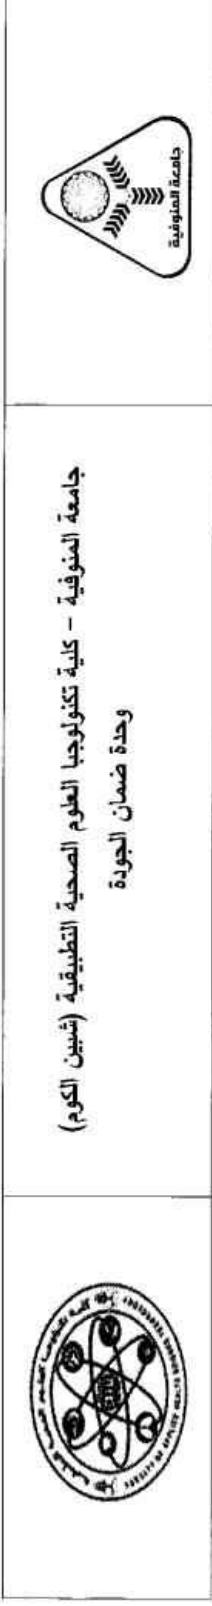 جامعة المنوفية
جامعة المنوفية – كلية تكنولوجيا العلوم الصحية التطبيقية (شبين الكوم)
وحدة ضمان الجودة